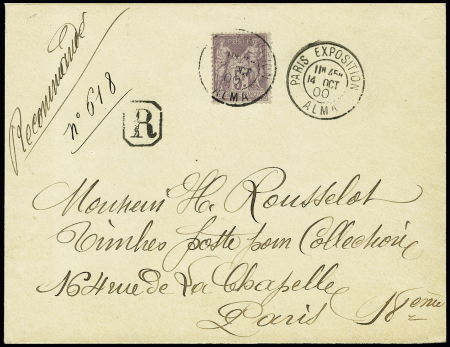 Recommandé
n° 618
R
ALMA
PARIS EXPOSITION
14 OCT
00
ALMA
Monsieur H. Rousselot
Timbres poste pour Collection
164 rue de La Chapelle
Paris 18ème